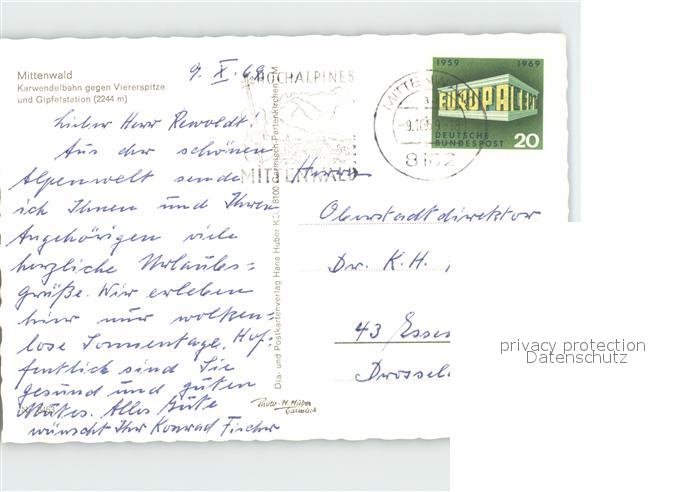 Mittenwald
Karwendelbahn gegen Viererspitze
und Gipfelstation (2244 m)
9. X. 69
Lieber Herr Rewoldt!
Aus der schönen
Alpenwelt sende
ich Ihnen und Ihren
Angehörigen viele
herzliche Urlaubs=
grüße. Wir erleben
hier nur wolken=
lose Sonnentage. Hof=
fentlich sind Sie
gesund und guten
Mutes. Alles Gute
wünscht Ihr Konrad Fischer
HOCHALPINES
MITTENWALD
Dia- und Postkartenverlag Hans Huber KG, 8100 Garmisch-Partenkirchen
Photo-H. Huber
Garmisch
MITTENW
-9.10.69-18
8102
1959 1969
EUROPA CEPT
DEUTSCHE
BUNDESPOST 20
Herrn
Oberstadtdirektor
Dr. K. H.
43 Essen
Drossel
privacy protection
Datenschutz